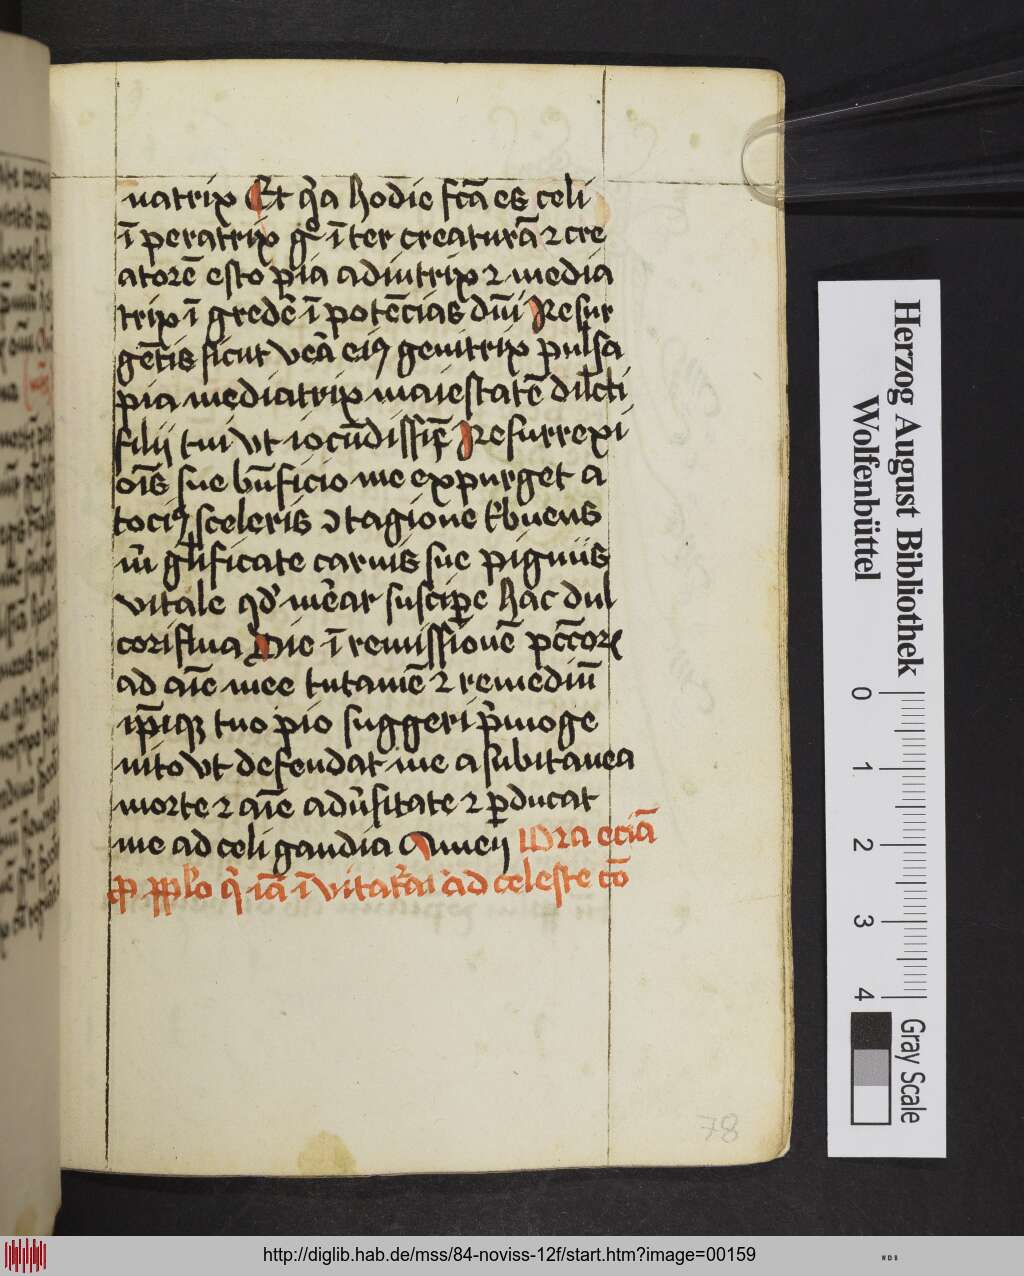 natrix Et q̃a hodie fc̃a es celi
ĩperatrix gͦ ĩter creaturã ⁊ cre
atorẽ esto pia adiutrix ⁊ media
trix ĩgredẽ ĩ potẽcias dñi Resur
gẽtis sicut vẽa eiꝰ genitrix pulsa
pia mediatrix maiestatẽ dilc̃ti
filij tui vt iocũdissiẽ Resurrexi
oĩs sue bñficio me expurget a
tociꝰ sceleris ꝯtagione
glificate carnis sue
vitale qd̾ mẽar suscipe hac dul
corisflua Die ĩ remissionẽ pc̃cor
ad aĩe mee tutamẽ ⁊ remediũ
ip̃iqꝫ tuo pio suggeri p̃moge
nito vt defendat me a subitanea
morte ⁊ aĩe adũsitate ⁊ ꝑducat
me ad celi gaudia Amen Ora eciã
ꝓ pplo q̃ iã ĩvitat᷑ ad celeste cõ
78
Herzog August Bibliothek
Wolfenbüttel
0 1 2 3 4
Gray Scale
http://diglib.hab.de/mss/84-noviss-12f/start.htm?image=00159